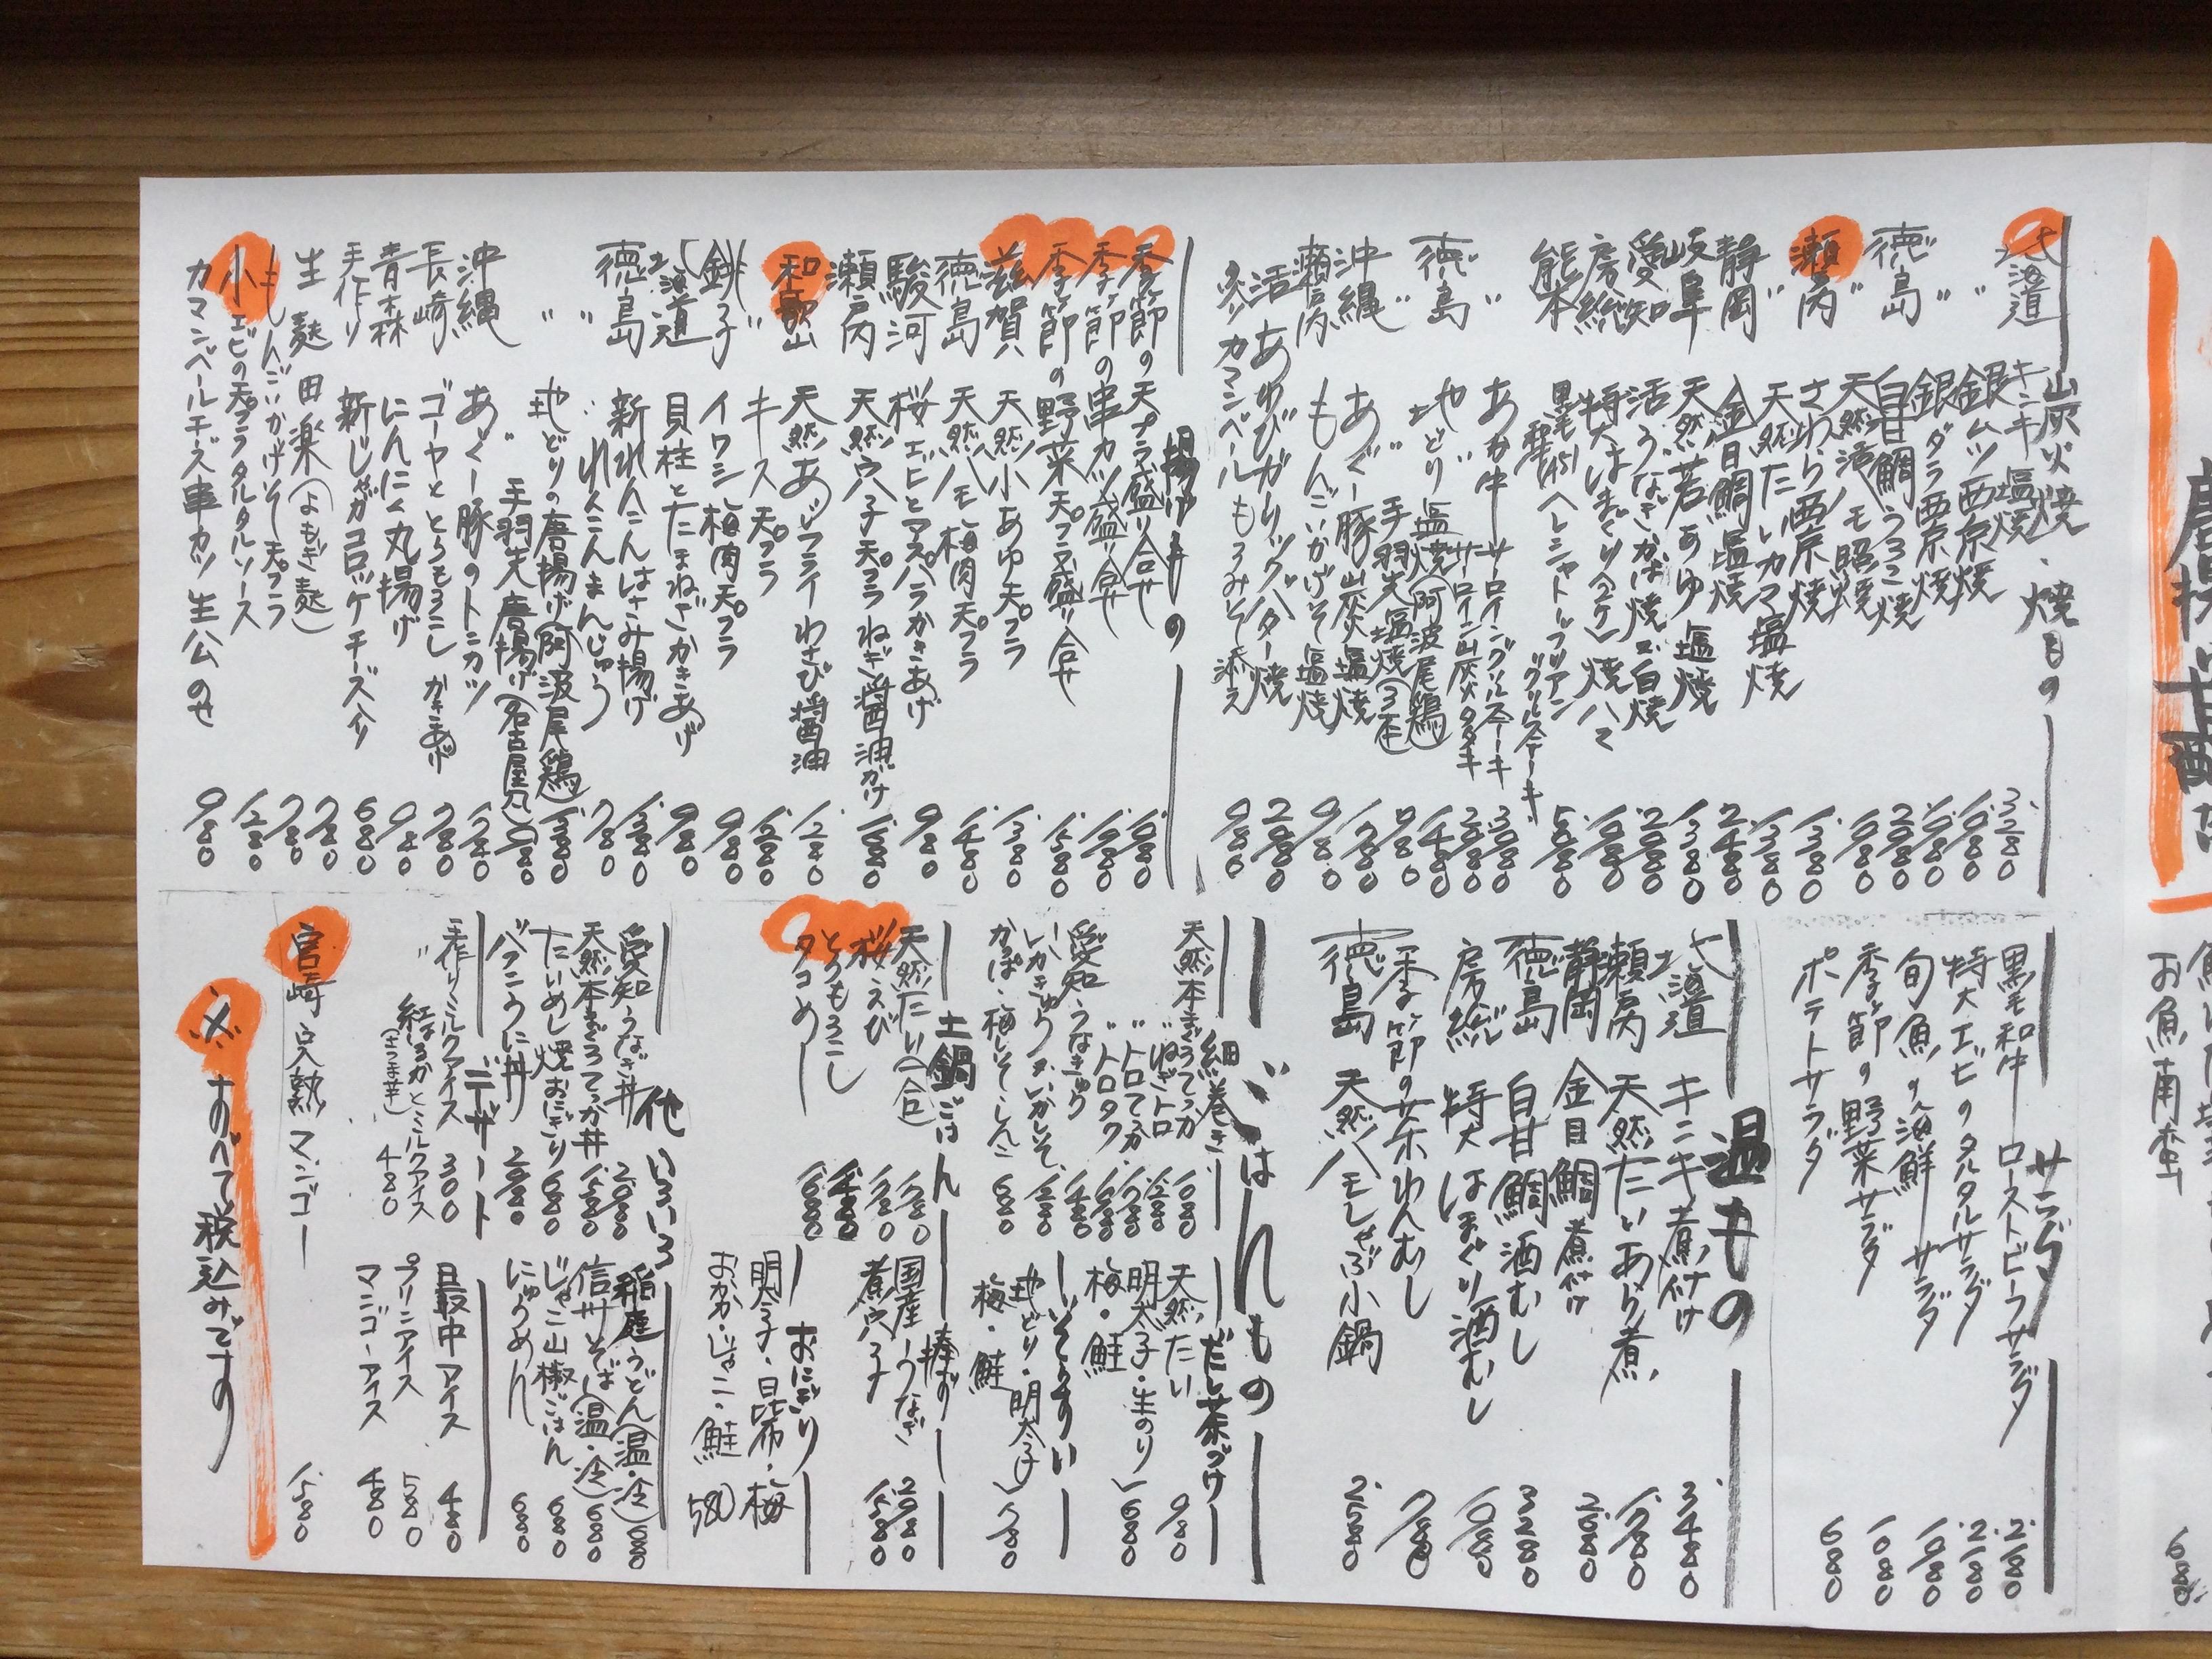 炭火焼・焼もの
北海道 キンキ塩焼 3.280
〃 銀ムツ西京焼 1.980
〃 銀ダラ西京焼 1.980
徳島 白甘鯛うろこ焼 2.980
〃 天然活ハモ照焼 1.980
瀬戸内 さわら西京焼 1.380
〃 天然たいカマ塩焼 1.380
静岡 金目鯛塩焼 2.480
岐阜 天然若あゆ塩焼 1.380
愛知 活うなぎかば焼 又は 白焼
房総 特大はまぐり(2ケ)焼ハマ
熊本 黒毛和牛(A5)ヘレシャトーブリアン グリルステーキ
〃 あか牛 サーロイングリルステーキ
サーロイン炭火タタキ
徳島 地どり塩焼(阿波尾鶏) 1.480
〃 〃 手羽先塩焼(3本)
沖縄 あぐー豚炭火塩焼
瀬戸内 もんごいかげそ塩焼 980
活あわびガーリックバター焼
炙りカマンベールもろみそ添え 980
揚げもの
季節の天プラ盛り合せ 1.980
季節の串カツ盛り合せ 1.980
季節の野菜天プラ盛り合せ 1.580
滋賀 天然小あゆ天プラ 1.380
徳島 天然ハモ梅肉天プラ 1.480
駿河 桜エビとアスパラかきあげ 980
瀬戸内 天然穴子天プラねぎ醤油がけ
和歌山 天然あじフライわさび醤油
〃 キス天プラ 1.280
銚子 イワシ梅肉天プラ 980
北海道 貝柱とたまねぎかきあげ 980
徳島 新れんこんはさみ揚げ 1.380
〃 れんこんまんじゅう 780
〃 地どりの唐揚げ(阿波尾鶏) 1.380
〃 手羽先唐揚げ(名古屋風)
沖縄 あぐー豚のトンカツ
長崎 ゴーヤととうもろこしかきあげ 780
青森 にんにく丸揚げ
手作り 新じゃがコロッケチーズ入り 680
生麩田楽(よもぎ麩) 780
もんごいかげそ天プラ 780
小エビの天プラタルタルソース 1.280
カマンベールチーズ串カツ生公のせ 980
サラダ
黒毛和牛ローストビーフサラダ 2.180
特大エビのタルタルサラダ 2.180
旬魚の海鮮サラダ 1.980
季節の野菜サラダ 1.080
ポテトサラダ 680
温もの
北海道 キンキ煮付け 3.480
瀬戸内 天然たいあら煮 1.780
静岡 金目鯛煮付け
徳島 白甘鯛酒むし 3.280
房総 特大はまぐり酒むし
季節の茶わんむし 780
徳島 天然ハモしゃぶ小鍋 2.580
ごはんもの
細巻き
天然本まぐろてっか
〃 ねぎトロ
〃 トロてっか
〃 トロタク
愛知うなきゅう 1.480
いかきゅう又いかしそ 1.280
かっぱ・梅しそ・しんこ 680
だし茶づけ
天然たい 980
明太子・生のり
梅・鮭
680
いそぞうすい
地どり・明太子
梅・鮭
780
土鍋ごはん
天然たい(一合)
桜えび
とうもろこし
タコめし
棒ずし
国産うなぎ 2.980
煮穴子 1.580
おにぎり
明太子・昆布・梅
おかか・じゃこ・鮭 580
他いろいろ
愛知うなぎ丼 2.980
天然本まぐろてっか丼
たいめし焼おにぎり 680
バフンうに丼
稲庭うどん(温・冷) 680
信州そば(温・冷) 680
じゃこ山椒ごはん 680
にゅうめん 680
デザート
手作りミルクアイス 300
〃 紅はるかとミルクアイス(さつま芋) 480
最中アイス 480
プリンアイス 580
マンゴーアイス 480
宮崎 完熟マンゴー 1.580
※すべて税込みです
お魚南蛮
680